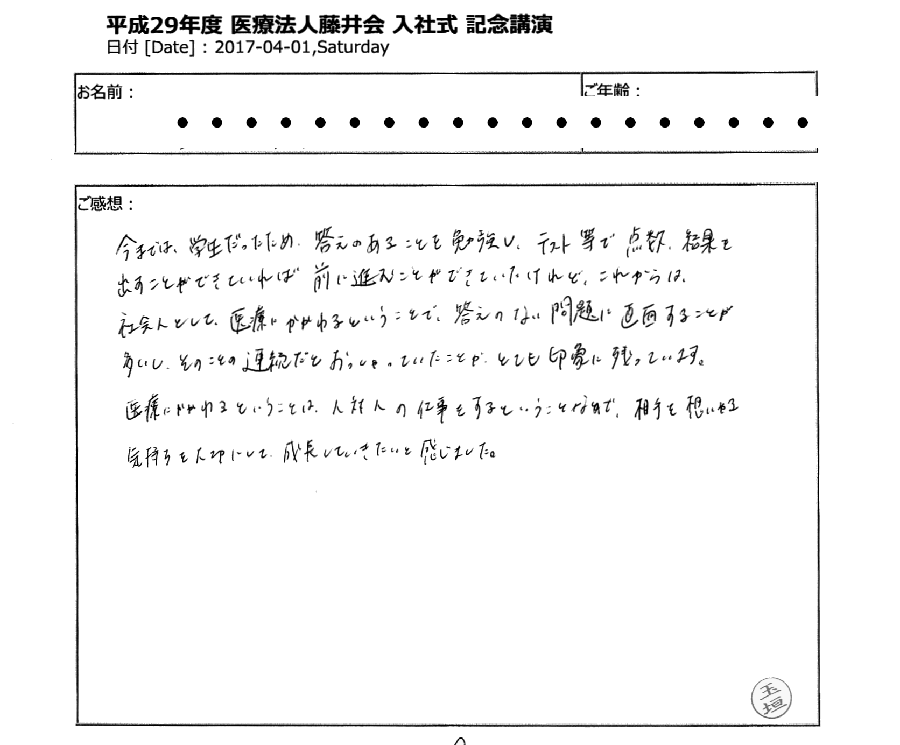 平成29年度 医療法人藤井会 入社式 記念講演
日付 [Date] : 2017-04-01,Saturday
お名前：
ご年齢：
ご感想：
今までは、学生だったため、答えのあることを勉強し、テスト等で点数、結果を
出すことができていれば前に進むことができていたけれど、これからは、
社会人として、医療にかかわるということで、答えのない問題に直面することが
多いし、そのことの連続だとおっしゃっていたことが、とても印象に残っています。
医療にかかわるということは、人対人の仕事をするということなので、相手を想いやる
気持ちを大切にして、成長していきたいと感じました。
玉垣